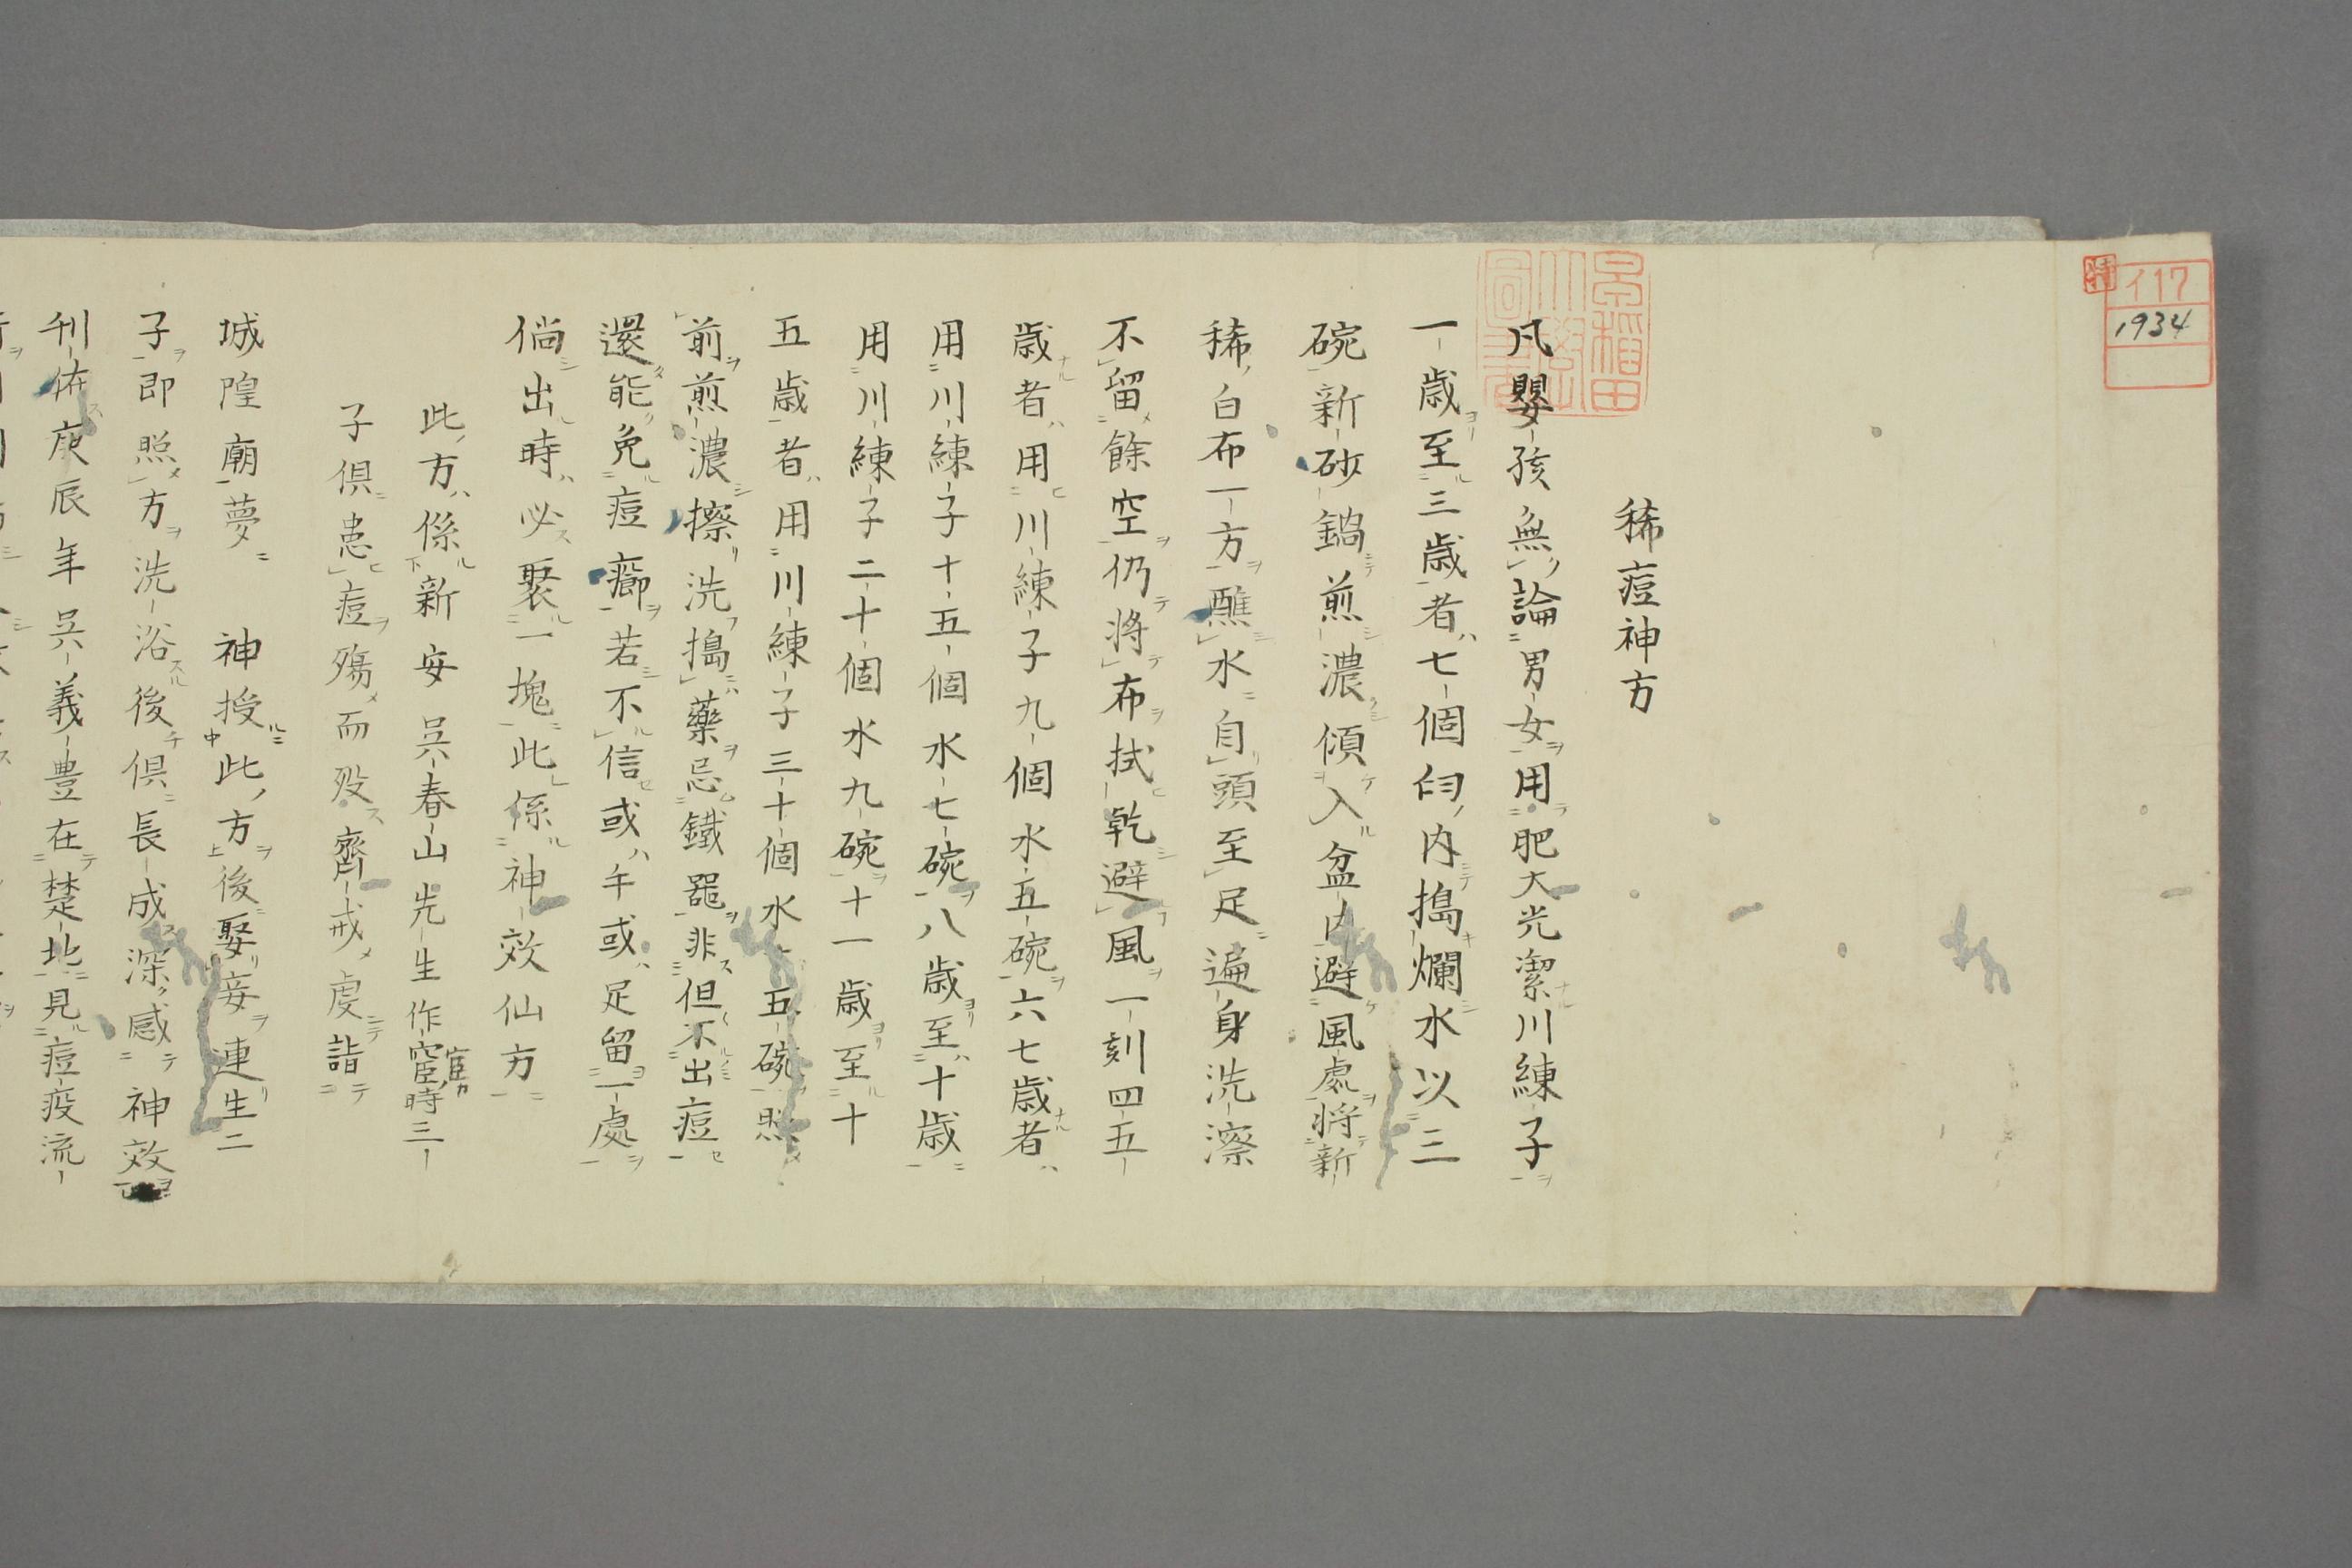 イ17
1934
稀痘神方
凡嬰孩無論男女用肥大光潔川練子
一歳至三歳者七個臼内搗爛水以三
碗新砂鍋煎濃傾入盆内避風處将新
稀白布一方蘸水自頭至足遍身洗擦
不留餘空仍将布拭乾避風一刻四五
歳者用川練子九個水五碗六七歳者
用川練子十五個水七碗八歳至十歳
用川練子二十個水九碗十一歳至十
五歳者用川練子三十個水十五碗照
前煎濃擦洗搗藥忌鐵器非但不出痘
還能免痘癤若不信或午或足留一處
倘出時必聚一塊此係神效仙方
此方係新安呉春山先生作宦時三
子倶患痘殤而歿齊戒虔詣
城隍廟夢 神授此方後娶妾連生二
子即照方洗浴後倶長成深感 神效
刊佈庚辰年呉義豊在楚地見痘疫流